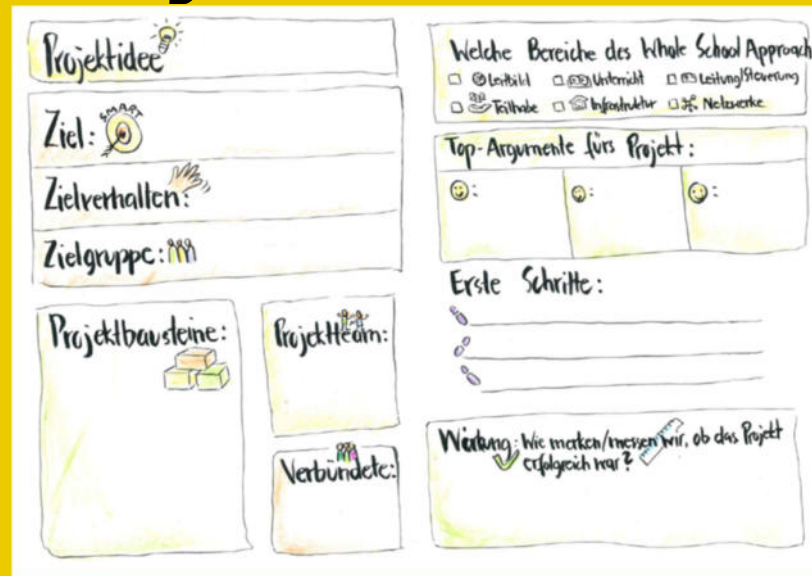 Projektidee
Ziel:
SMART
Zielverhalten:
Zielgruppe:
Projektbausteine:
Projektteam:
Verbündete:
Welche Bereiche des Whole School Approach
Leitbild Unterricht Leitung/Steuerung
Teilhabe Infrastruktur Netzwerke
Top-Argumente fürs Projekt:
:
:
:
Erste Schritte:
Wirkung: Wie merken/messen wir, ob das Projekt
erfolgreich war?